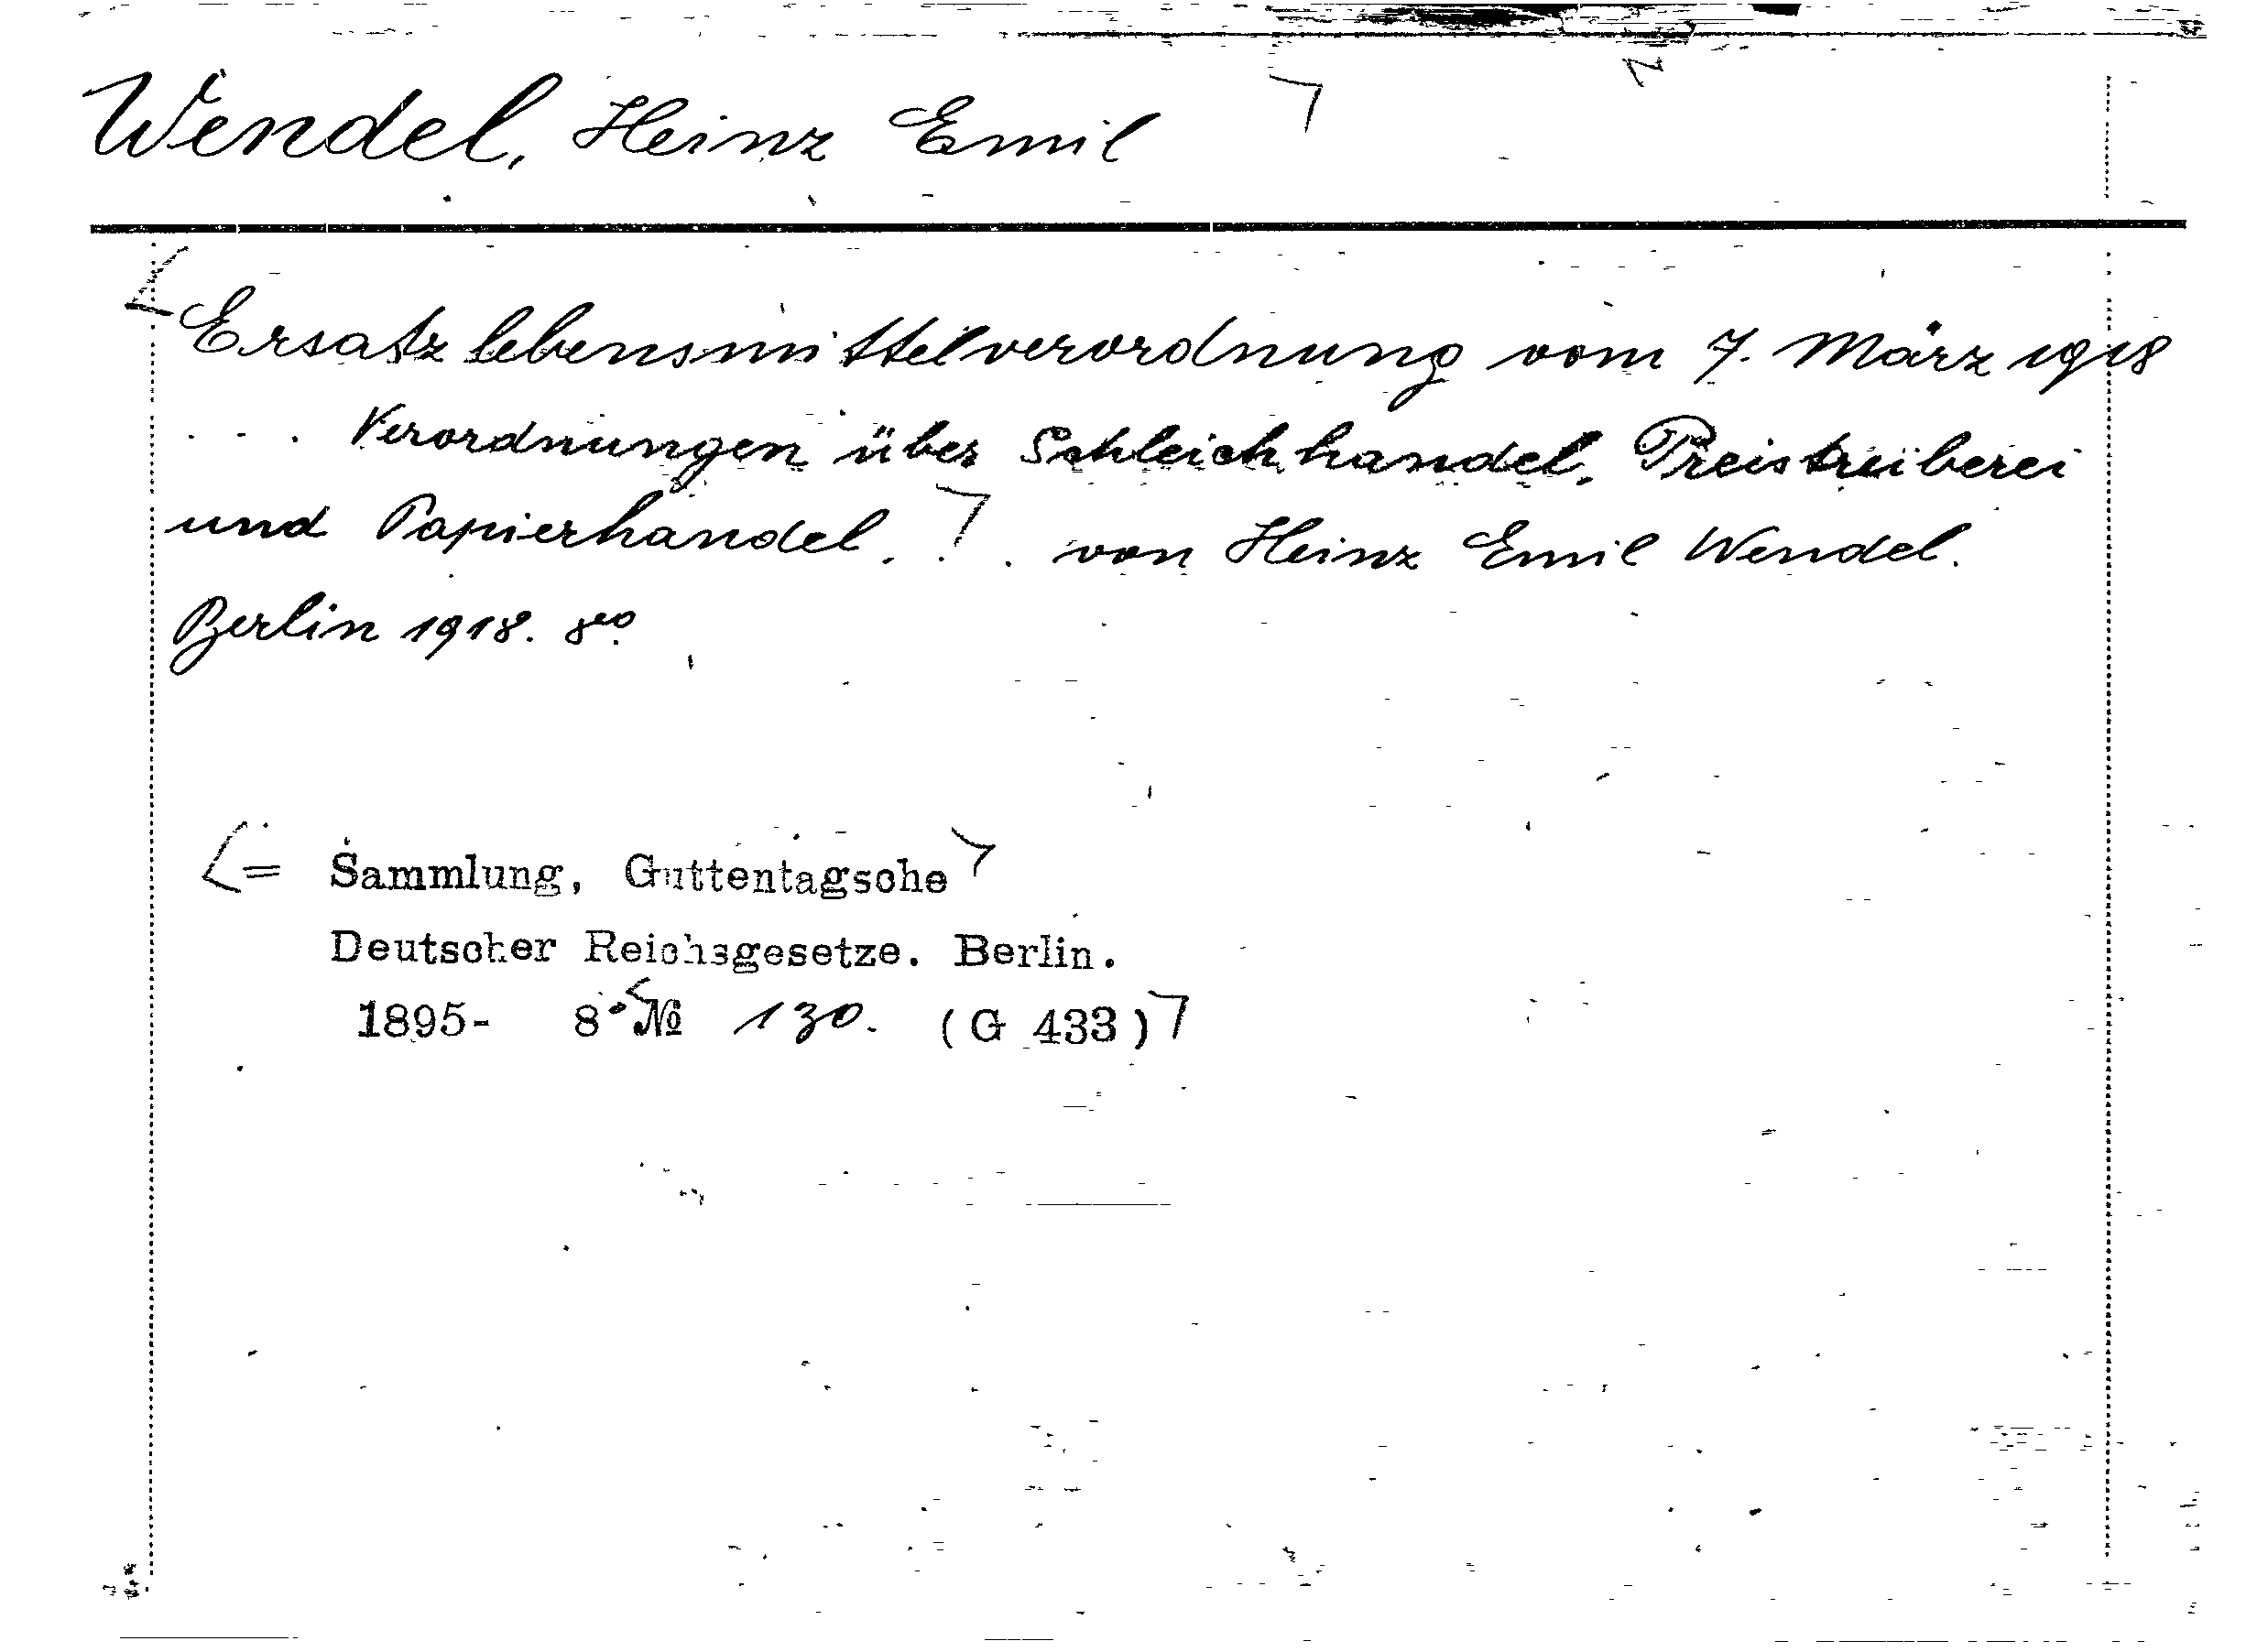 Wendel, Heinz Emil
Ersatzlebensmittelverordnung vom 7. März 1918
... Verordnungen über Schleichhandel, Preistreiberei
und Papierhandel ... von Heinz Emil Wendel.
Berlin 1918. 8vo.
= Sammlung, Guttentagsche
Deutscher Reichsgesetze. Berlin.
1895- 8° № 130. (G 433)